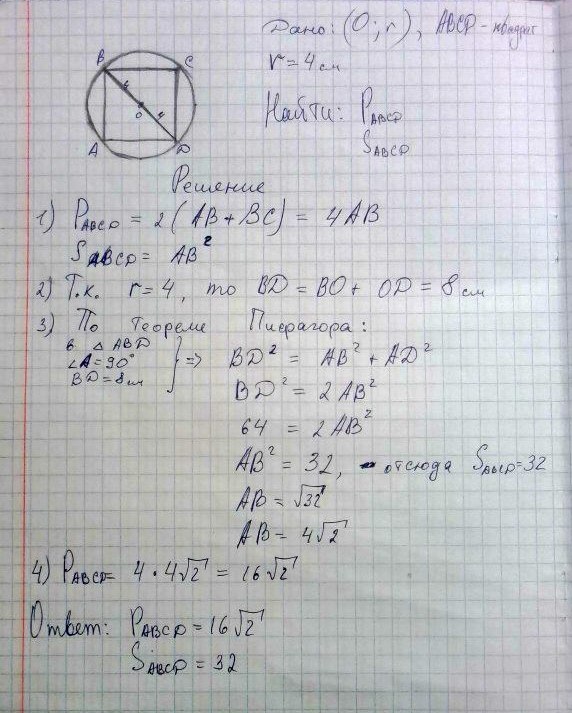 Дано: (O; r), ABCD - квадрат
r = 4 см
Найти: P_ABCD
S_ABCD
B
C
4
O
4
A
D
Решение
1) P_ABCD = 2(AB + BC) = 4AB
S_ABCD = AB²
2) Т.к. r = 4, то BD = BO + OD = 8 см
3) По теореме Пифагора:
в △ ABD
∠A = 90°
BD = 8 см
} => BD² = AB² + AD²
BD² = 2AB²
64 = 2AB²
AB² = 32, - отсюда S_ABCD = 32
AB = √32
AB = 4√2
4) P_ABCD = 4 · 4√2 = 16√2
Ответ: P_ABCD = 16√2
S_ABCD = 32